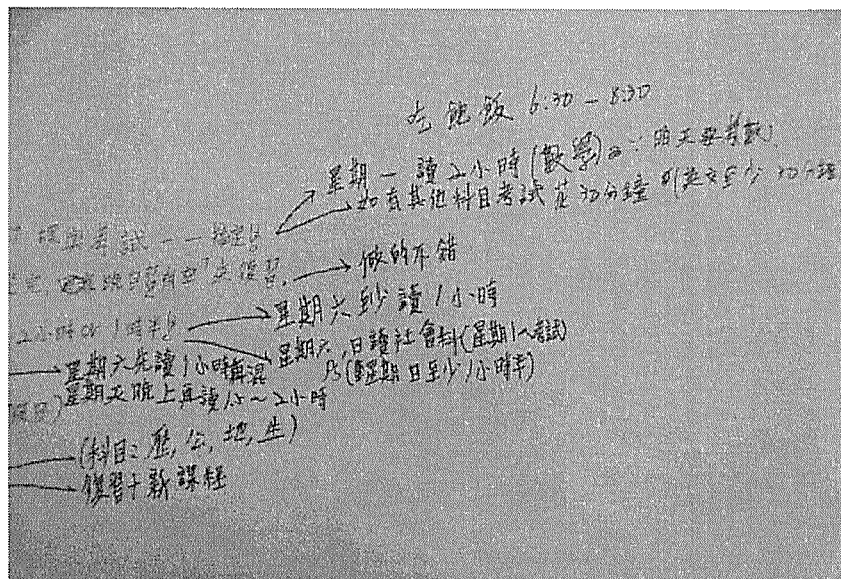 吃飽飯 6:30 - 8:30
星期一讀 2小時 (數學)。∵ 明天要考數
如有其他科目考試花 30分鐘 英文至少 30分鐘
考試 一一
復習. 做的不錯
2小時 or 1時半 星期六至少讀 1小時
星期六,日讀社會科 (星期1~考試)
星期六先讀 1小時再混 Ps (星期日至少 1小時半)
星期五晚上再讀 1.5 ~ 2小時
(科目: 歷, 公, 地, 生)
復習+新課程